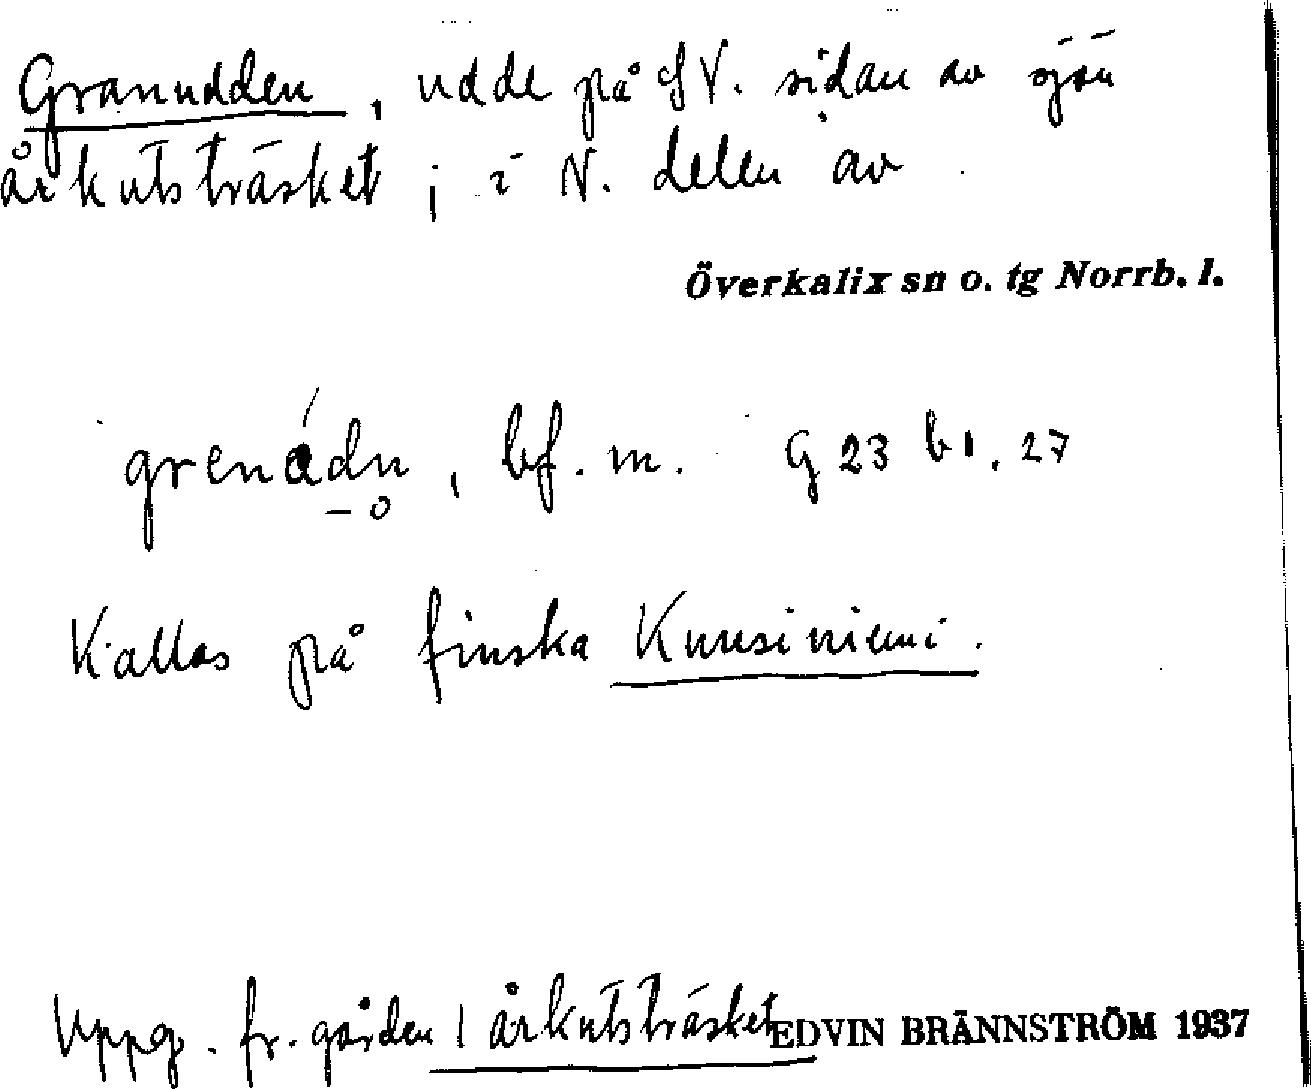 Granudden, udde på SV. sidan av sjön
årkutsträsket i i N. delen av
Överkalix sn o. tg Norrb. l.
grenádn, bf. m. G 23 b 1. 27
Kallas på finska Kuusiniemi.
Uppg. fr. gården / årkutsträsket EDVIN BRÄNNSTRÖM 1937